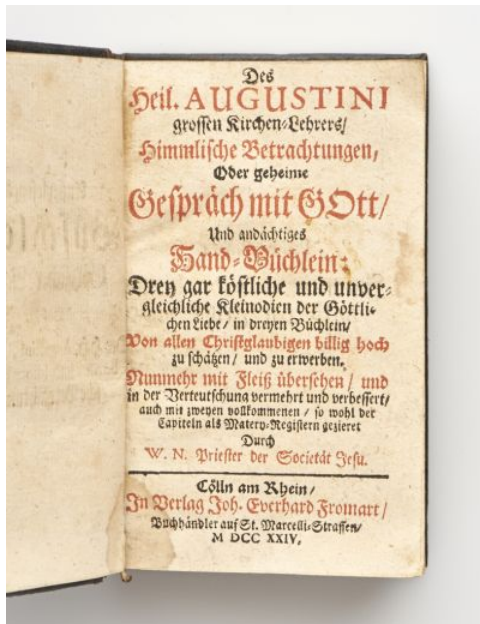 Des
Heil. AUGUSTINI
grossen Kirchen-Lehrers/
Himmlische Betrachtungen,
Oder geheime
Gespräch mit GOtt/
Und andächtiges
Hand-Büchlein:
Drey gar köstliche und unver-
gleichliche Kleinodien der Göttli-
chen Liebe/ in dreyen Büchlein/
Von allen Christglaubigen billig hoch
zu schätzen/ und zu erwerben.
Nunmehr mit Fleiß übersehen/ und
in der Verteutschung vermehrt und verbessert/
auch mit zweyen vollkommenen/ so wohl der
Capiteln als Matery-Registern gezieret
Durch
W. N. Priester der Societät Jesu.
Cölln am Rhein/
In Verlag Joh. Everhard Fromart/
Buchhändler auf St. Marcelli-Strassen/
M DCC XXIV.